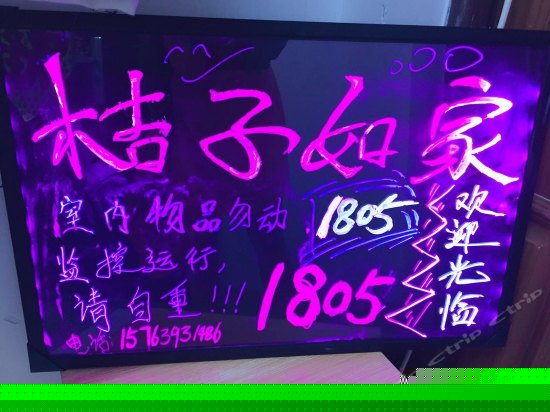 桔子如家
室内物品勿动
1805
监控运行,
请自重!!!
1805
欢迎光临
电话: 15763931486
ctrip
ctrip